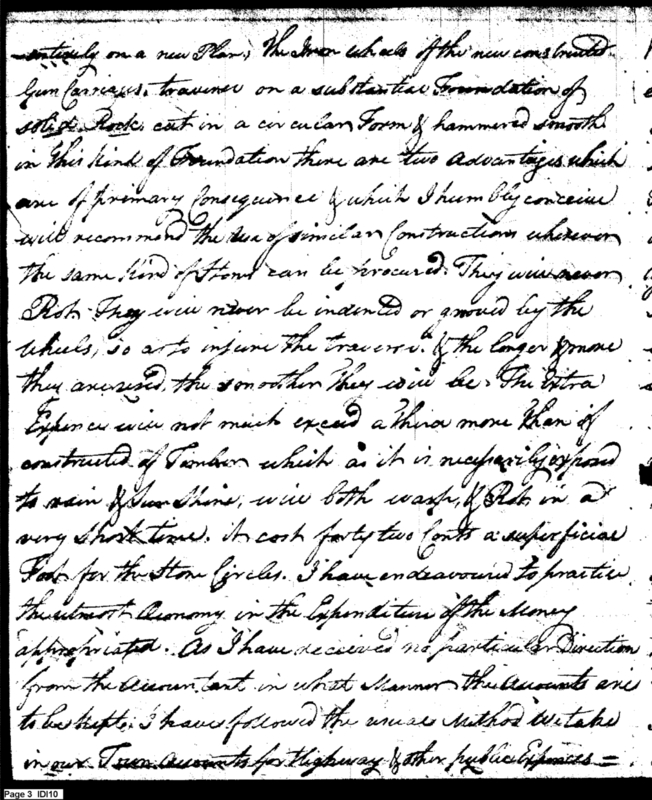 entirely on a new Plan, the Iron wheels of the new constructed
Gun Carriages, traverse on a substantial Foundation of
solid Rock cut in a circular Form & hammered smooth
in this kind of Foundation there are two advantages which
are of primary Consequence & which I humbly conceive
will recommend the use of similar Constructions wherever
the same kind of Stone can be procured. They will never
Rot. They will never be indented or grooved by the
wheels, so as to injure the traverse. & the longer & more
they are used, the smoother they will be. The Extra
Expence will not much exceed a third more than if
constructed of Timber which as it is necessarily exposed
to rain & Sun Shine, will both warp, & Rot in a
very short time. it cost forty two Cents a superficial
Foot for the Stone Circles. I have endeavoured to practice
the utmost Œconomy in the Expenditure of the Money
appropriated. As I have received no particular Direction
from the Accountant in what Manner the Accounts are
to be kept. I have followed the usual Method we take
in our Town Accounts for Highway & other public Expences =
Page 3 IDI10